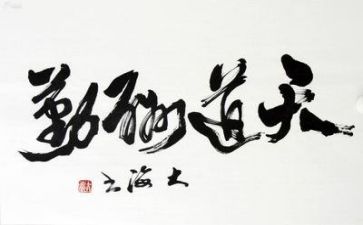 天道酬勤
大海书